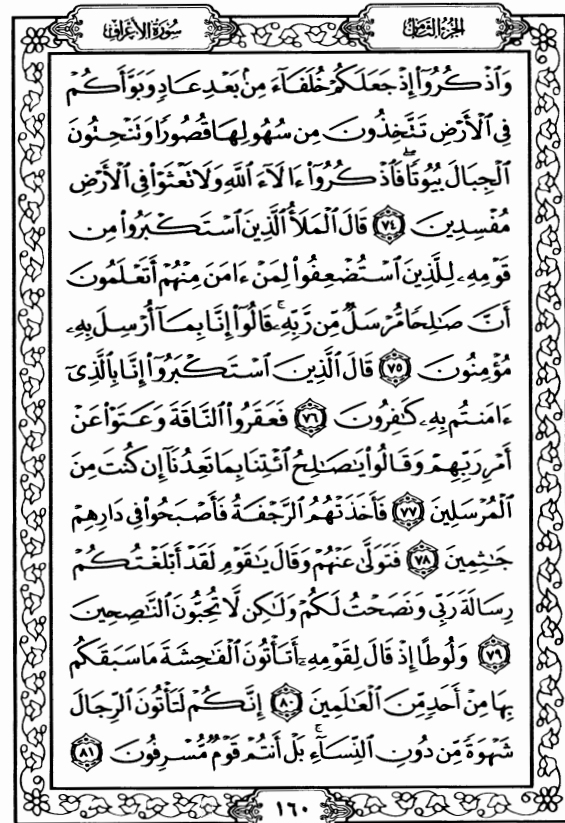 سُورَةُ الأَعْرَافِ
الجُزْءُ الثَّامِنُ
وَٱذْكُرُوٓا۟ إِذْ جَعَلَكُمْ خُلَفَآءَ مِنۢ بَعْدِ عَادٍ وَبَوَّأَكُمْ
فِى ٱلْأَرْضِ تَتَّخِذُونَ مِن سُهُولِهَا قُصُورًا وَتَنْحِتُونَ
ٱلْجِبَالَ بُيُوتًا ۖ فَٱذْكُرُوٓا۟ ءَالَآءَ ٱللَّهِ وَلَا تَعْثَوْا۟ فِى ٱلْأَرْضِ
مُفْسِدِينَ ٧٤ قَالَ ٱلْمَلَأُ ٱلَّذِينَ ٱسْتَكْبَرُوا۟ مِن
قَوْمِهِۦ لِلَّذِينَ ٱسْتُضْعِفُوا۟ لِمَنْ ءَامَنَ مِنْهُمْ أَتَعْلَمُونَ
أَنَّ صَـٰلِحًا مُّرْسَلٌ مِّن رَّبِّهِۦ ۚ قَالُوٓا۟ إِنَّا بِمَآ أُرْسِلَ بِهِۦ
مُؤْمِنُونَ ٧٥ قَالَ ٱلَّذِينَ ٱسْتَكْبَرُوٓا۟ إِنَّا بِٱلَّذِىٓ
ءَامَنتُم بِهِۦ كَـٰفِرُونَ ٧٦ فَعَقَرُوا۟ ٱلنَّاقَةَ وَعَتَوْا۟ عَنْ
أَمْرِ رَبِّهِمْ وَقَالُوا۟ يَـٰصَـٰلِحُ ٱئْتِنَا بِمَا تَعِدُنَآ إِن كُنتَ مِنَ
ٱلْمُرْسَلِينَ ٧٧ فَأَخَذَتْهُمُ ٱلرَّجْفَةُ فَأَصْبَحُوا۟ فِى دَارِهِمْ
جَـٰثِمِينَ ٧٨ فَتَوَلَّىٰ عَنْهُمْ وَقَالَ يَـٰقَوْمِ لَقَدْ أَبْلَغْتُكُمْ
رِسَالَةَ رَبِّى وَنَصَحْتُ لَكُمْ وَلَـٰكِن لَّا تُحِبُّونَ ٱلنَّـٰصِحِينَ
٧٩ وَلُوطًا إِذْ قَالَ لِقَوْمِهِۦٓ أَتَأْتُونَ ٱلْفَـٰحِشَةَ مَا سَبَقَكُم
بِهَا مِنْ أَحَدٍ مِّنَ ٱلْعَـٰلَمِينَ ٨٠ إِنَّكُمْ لَتَأْتُونَ ٱلرِّجَالَ
شَهْوَةً مِّن دُونِ ٱلنِّسَآءِ ۚ بَلْ أَنتُمْ قَوْمٌ مُّسْرِفُونَ ٨١
١٦٠